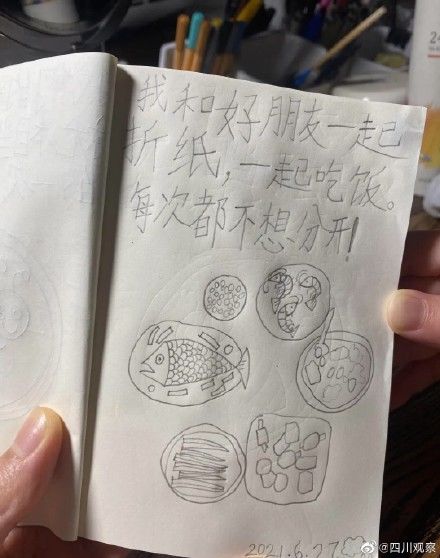 我和好朋友一起
折纸，一起吃饭。
每次都不想分开！
2021.6.27
24
@四川观察